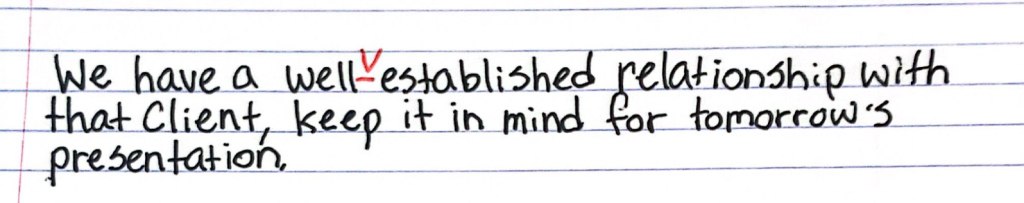 We have a well-established relationship with
that Client, keep it in mind for tomorrow's
presentation.